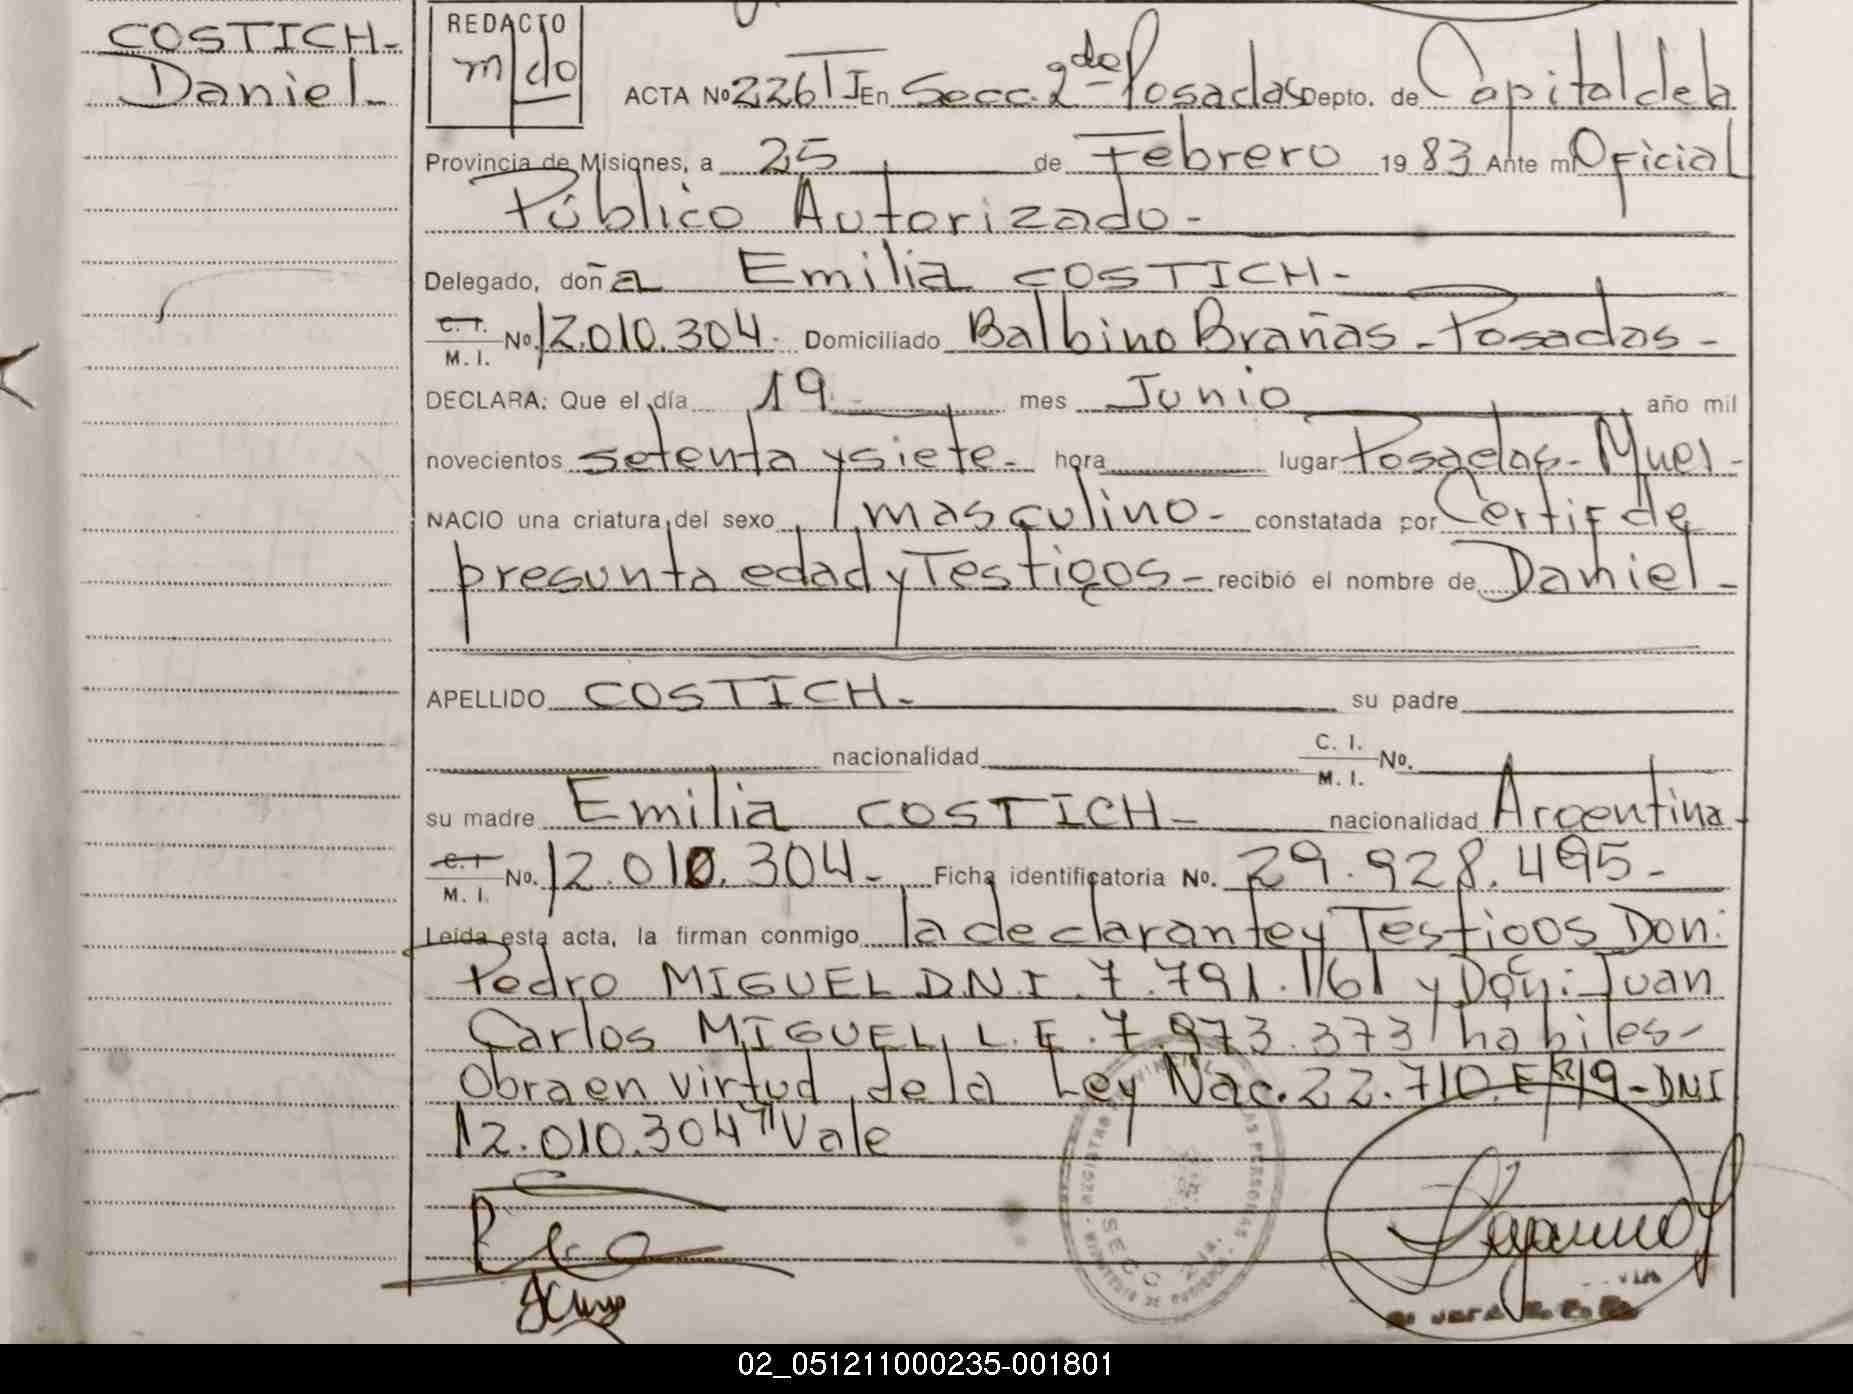 COSTICH-
Daniel-
REDACTO
ACTA Nº 226 TI En Secc. 2da Posadas Depto. de Capital de la
Provincia de Misiones, a 25 de Febrero 1983 Ante mi Oficial
Público Autorizado-
Delegado, doña Emilia COSTICH-
C. I.
M. I. Nº. 12.010.304. Domiciliado Balbino Brañas - Posadas -
DECLARA: Que el día 19 mes Junio año mil
novecientos setenta y siete- hora lugar Posadas- Mnes-
NACIO una criatura del sexo masculino- constatada por Certif de
presunta edad y Testigos- recibió el nombre de Daniel-
APELLIDO COSTICH- su padre
nacionalidad C. I.
M. I. Nº.
su madre Emilia COSTICH- nacionalidad Argentina-
C. I.
M. I. Nº. 12.010.304- Ficha identificatoria Nº. 29.928.495-
Leída esta acta, la firman conmigo la declarante y Testigos Don:
Pedro MIGUEL D.N.I. 7.791.161 y Don: Juan
Carlos MIGUEL, L.E. 7.973.373 habiles-
Obra en virtud de la Ley Nac. 22.710. E/R 19- DNI
12.010.304" Vale
02_051211000235-001801